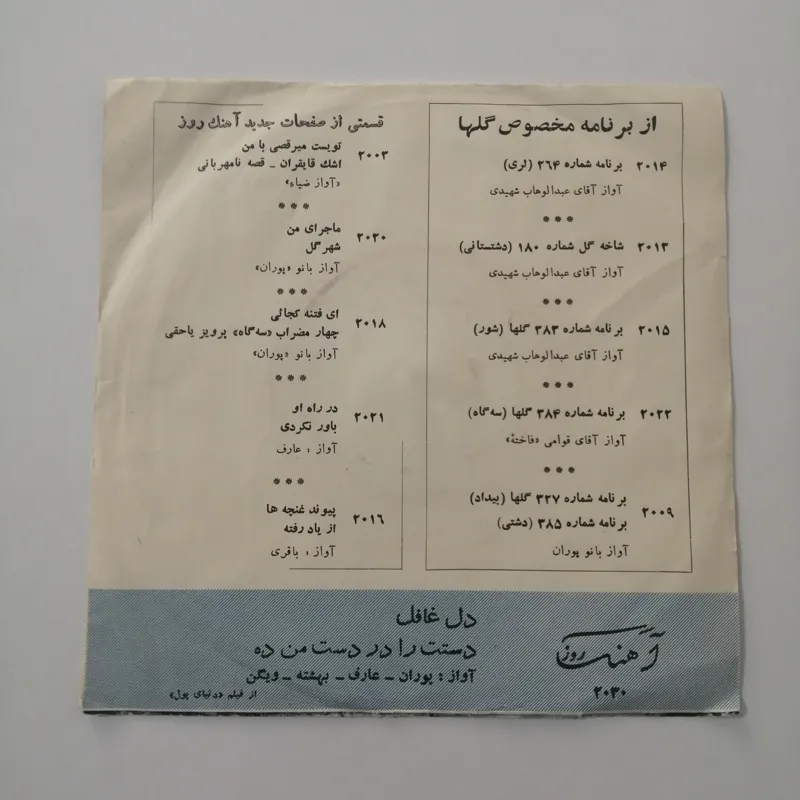 از برنامه مخصوص گلها
۲۰۱۴ برنامه شماره ۲۶۴ (لری)
آواز آقای عبدالوهاب شهیدی
***
۲۰۱۳ شاخه گل شماره ۱۸۰ (دشتستانی)
آواز آقای عبدالوهاب شهیدی
***
۲۰۱۵ برنامه شماره ۳۸۳ گلها (شور)
آواز آقای عبدالوهاب شهیدی
***
۲۰۲۲ برنامه شماره ۳۸۴ گلها (سه‌گاه)
آواز آقای قوامی «فاخته»
***
برنامه شماره ۳۲۷ گلها (بیداد)
۲۰۰۹
برنامه شماره ۳۸۵ (دشتی)
آواز بانو پوران
قسمتی از صفحات جدید آهنگ روز
تویست میرقصی با من
۲۰۰۳
اشک قایقران - قصه نامهربانی
«آواز ضیاء»
***
ماجرای من
۲۰۲۰
شهر گل
آواز بانو «پوران»
***
ای فتنه کجائی
۲۰۱۸
چهار مضراب «سه‌گاه» پرویز یاحقی
آواز بانو «پوران»
***
در راه او
۲۰۲۱
باور نکردی
آواز : عارف
***
پیوند غنچه ها
۲۰۱۶
از یاد رفته
آواز : باقری
آهنگ روز
۲۰۳۰
دل غافل
دستت را در دست من ده
آواز : پوران - عارف - بهشته - ویگن
از فیلم «دنیای پول»